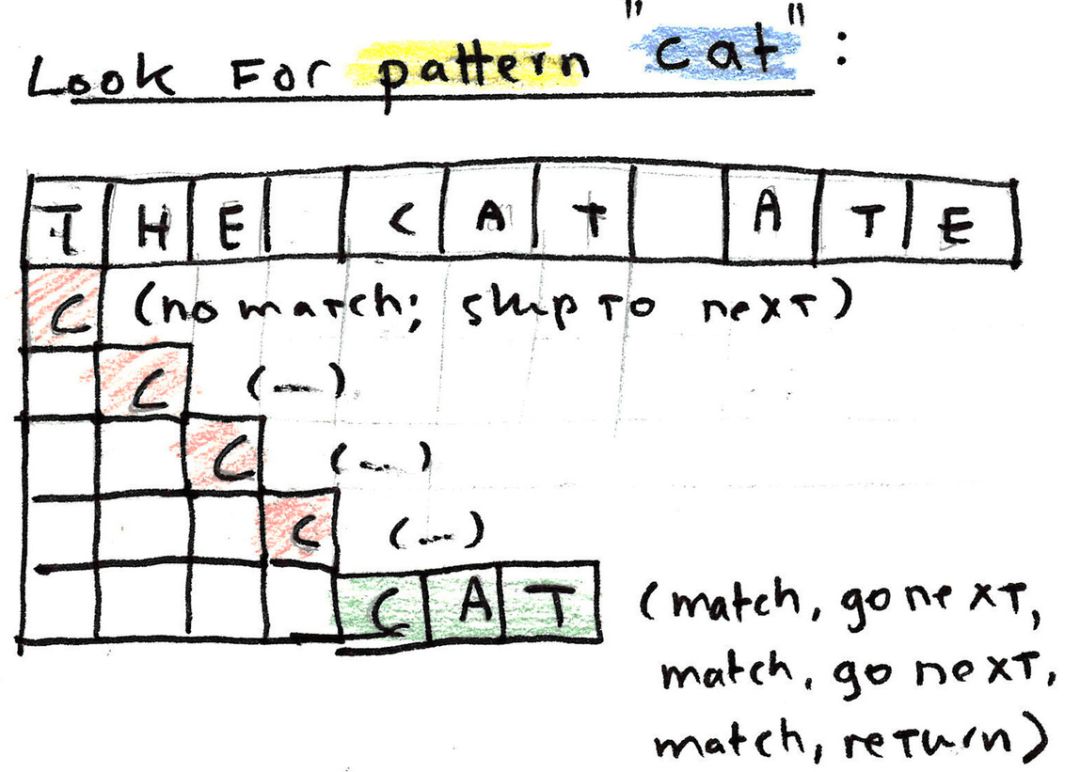 Look For pattern "cat" :
T H E C A T A T E
C (no match; skip to next)
C (...)
C (...)
C (...)
C A T (match, go next,
match, go next,
match, return)